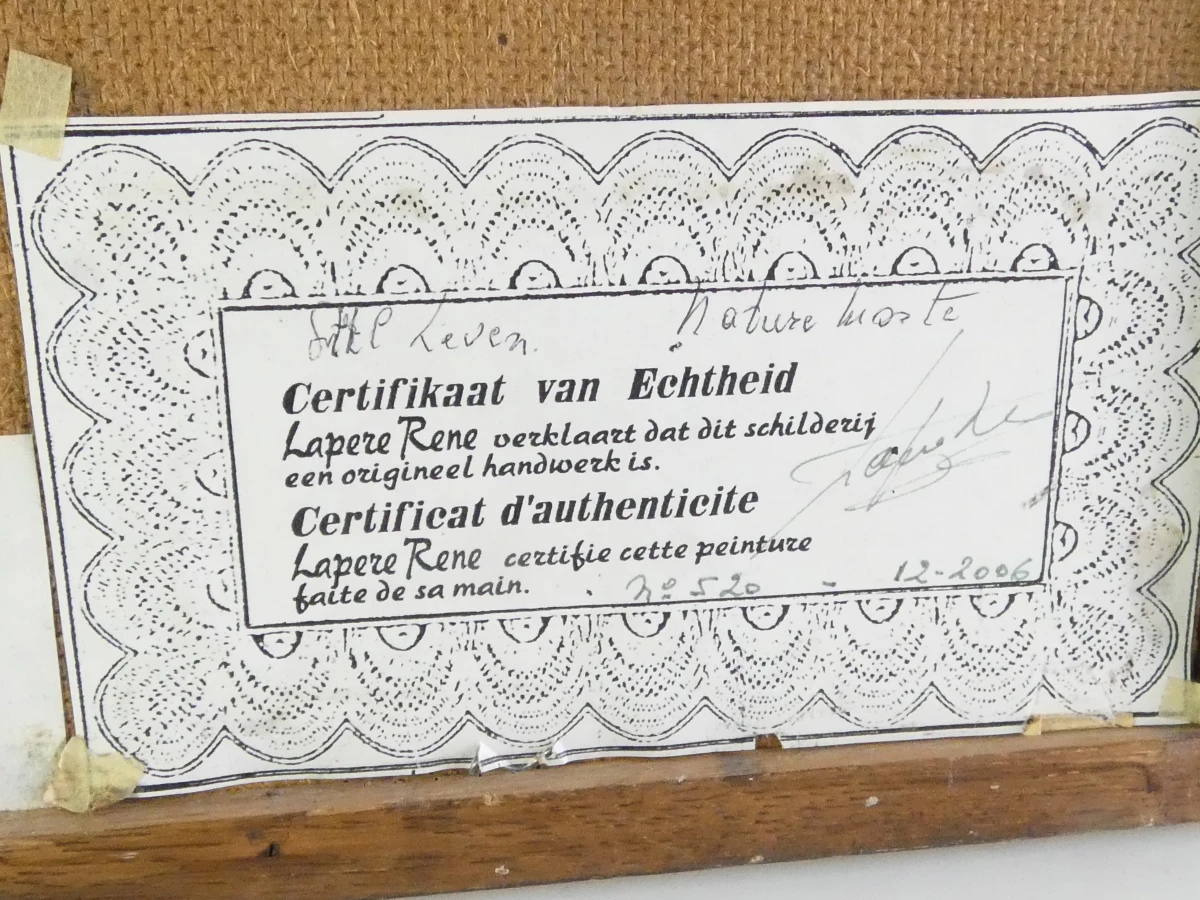 Stil Leven. Nature Morte
Certifikaat van Echtheid
Lapere Rene verklaart dat dit schilderij
een origineel handwerk is.
Certificat d'authenticite
Lapere Rene certifie cette peinture
faite de sa main. . Nº 520 - 12-2006